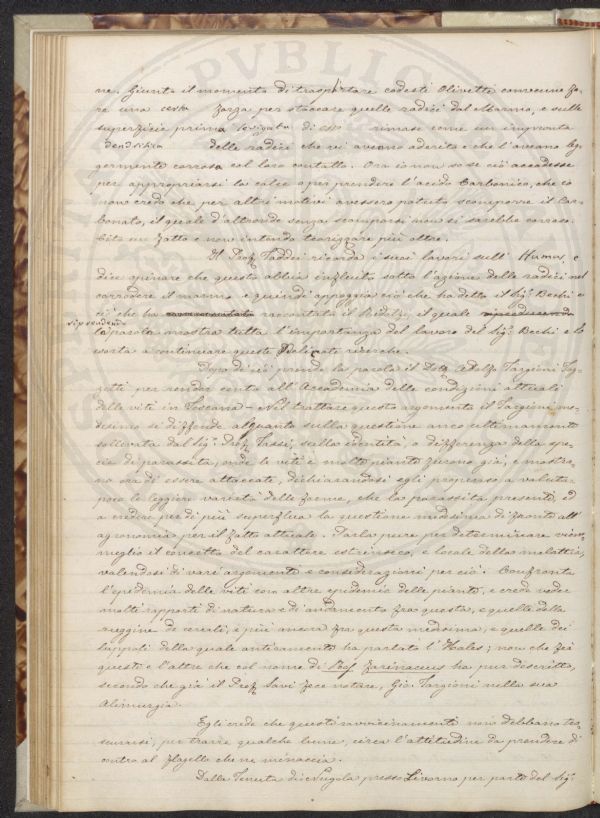 ne. Giunto il momento di trasportare codesti Olivetti convenne fa-
re una certa forza per staccare quelle radici dal Marmo, e sulle
superficie prima levigata di esso rimase come un impronta
dendritica delle radici che vi aveano aderito e che l'aveano leg-
germente corrosa col loro contatto. Ora io non so se ciò accadesse
per appropriarsi la calce o per prendere l'acido Carbonico, che io
non credo che per altri motivi avessero potuto scomporre il Car-
bonato, il quale d'altronde senza scomporsi non si sarebbe corroso.
Cito un fatto e non intendo teorizzare più oltre.
Il Prof. Taddei ricorda i suoi lavori sull' Humus, e
dice opinare che questo abbia influito sotto l'azione delle radici nel
corrodere il marmo e quindi appoggia ciò che ha detto il Sig. Bechi e
ciò che ha raccontato il Ridolfi, il quale
riprendendo
la parola mostra tutta l'importanza del lavoro del Sig. Bechi e lo
esorta a continuare queste Delicate ricerche.
Dopo di ciò prende la parola il Dott. Adolfo Targioni Toz-
zetti per render conto all'Accademia delle condizioni attuali
delle viti in Toscana - Nel trattare questo argomento il Targioni me-
desimo si diffonde alquanto sulla questione anco ultimamente
sollevata dal Sig. Prof. Tassi, sulla identità, o differenza della spe-
cie di parassita, onde le viti e molte piante furono già, e mostra-
no ora di essere attaccate, dichiarandosi egli propenso a valutar
poco le leggiere varietà delle forme, che la parassita presenta, ed
a credere per di più superflua la questione medesima di fronte all'
agronomia per il fatto attuale. Parla pure per determinare vie
meglio il concetto del carattere estrinseco, e locale della malattia,
valendosi di vari argomenti e considerazioni per ciò. Confronta
l'epidemia delle viti con altre epidemie delle piante, e crede veder
molti rapporti di natura e di andamento fra questa, e quella della
ruggine de cereali, e più ancora fra questa medesima, e quelle dei
luppoli della quale anticamente ha parlato l'Hales; non che fra
questi e l'altra che col nome di farinaceus ha pur descritto,
secondo che già il Prof. Savi fece notare, Gio. Targioni nella sua
Alimurgia.
Egli crede che questi ravvicinamenti non debbano tra-
scurarsi, per trarre qualche lume, circa l'attitudine da prendere di
contro al flagello che ne minaccia.
Dalla Tenuta di Sugola presso Livorno per parte del Sig.